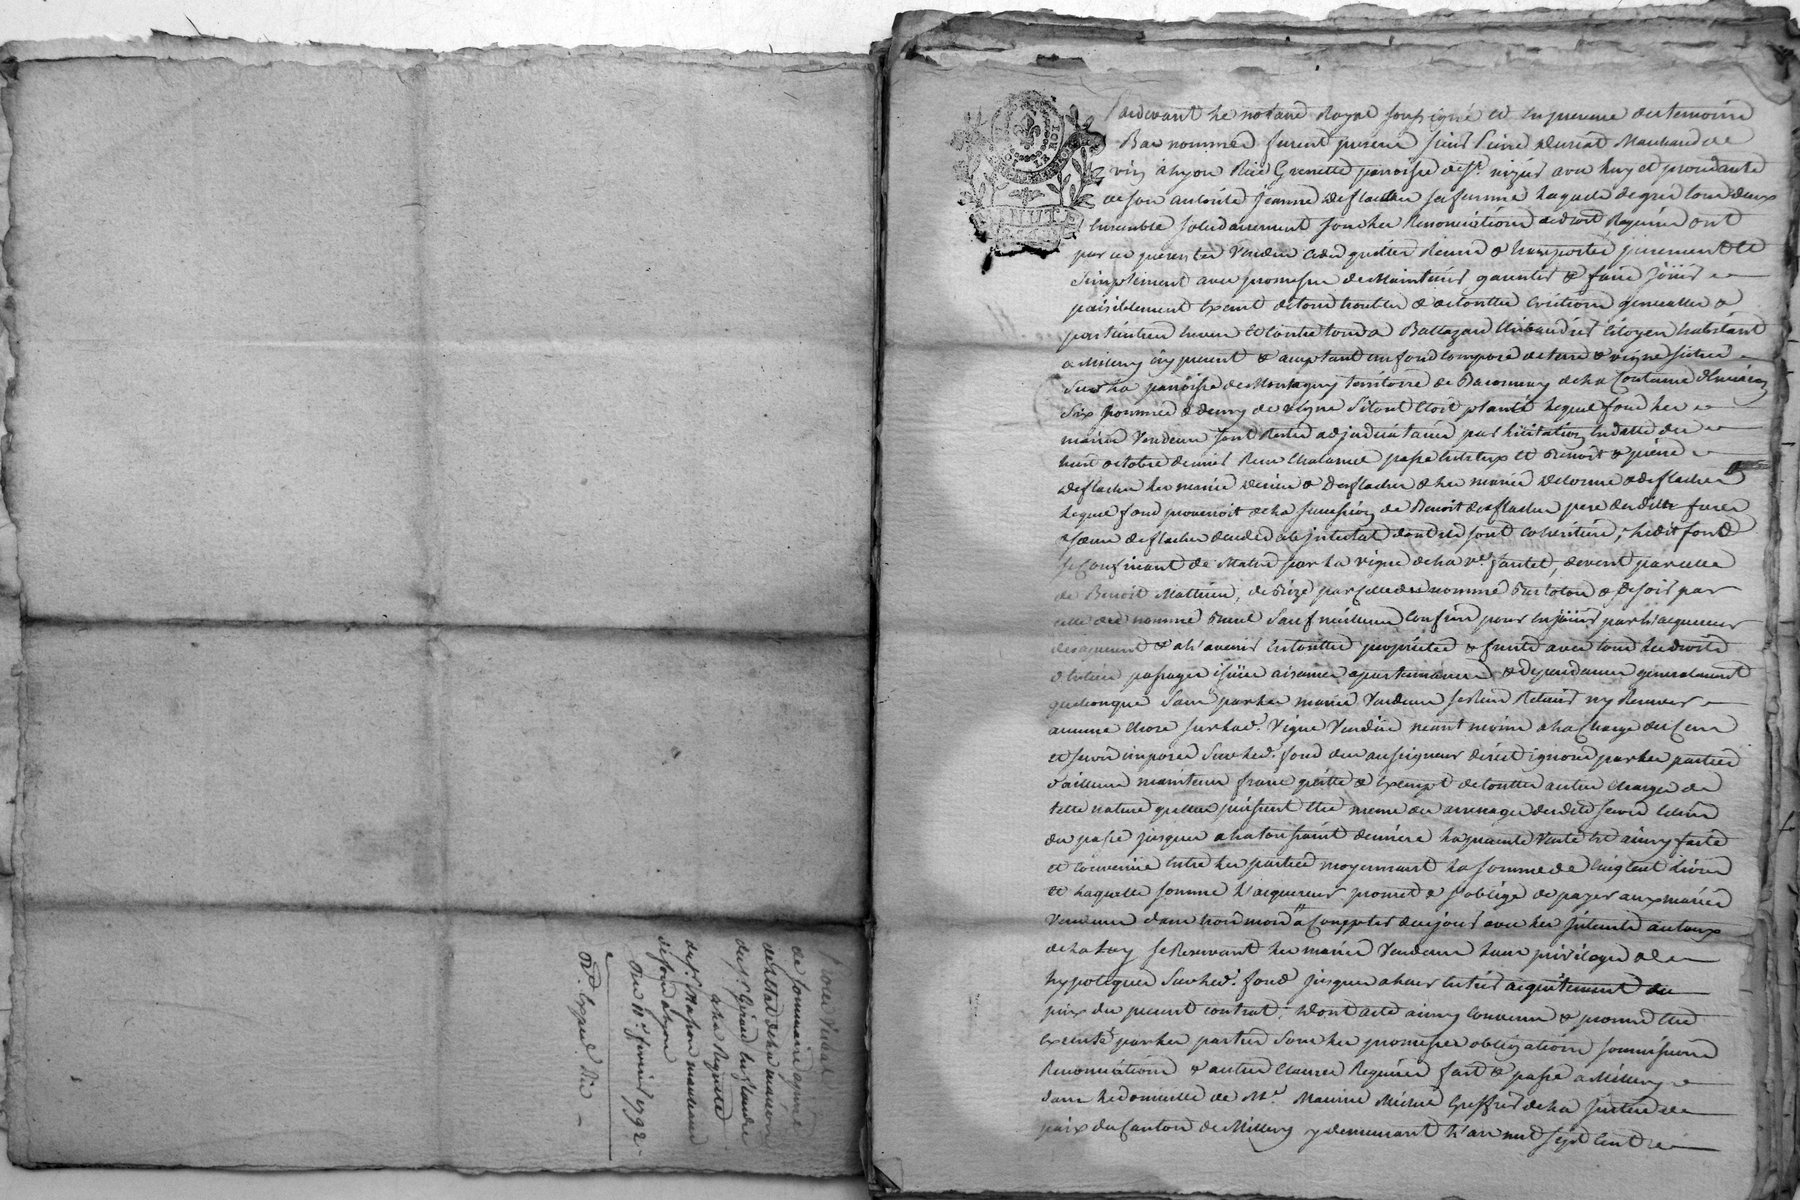 procès verbal
de sommaire apprise
de l'état de la maison
du sr. Girard
à la Requette
du sr. maison marchand
à Lyon
Du 11e. février 1792
Ord. Exped. Die
LA LOI LE ROI
MINUTE
Pardevant Le notaire Royal soussigné et En presence des temoins
Bas nommés furent presens sieur Pierre Marchand de
vin à Lyon Rüe Grenette parroisse de St. nizier avec Luy et procedante
de son autorité Jeanne Desflaches sa femme Laquelle de gré tous deux
Ensemble solidairement sous Les Renonciations de droit Requises ont
par ces presentes Vendu Cedé quitté Remis & transporté purement et
simplement avec promesse de Maintenir garentir & faire joüir
paisiblement exempt de tous troubles & de touttes Evictions generalles &
particulieres Envers et Contre tous a Baltazard Citoyen habitant
a Millery icy present & acceptant un fond Composé de terre & vigne situé
sur La parroisse de Montagny territoire de de La Contenue d'Environ
six hommées & demy de vigne s'il etoit planté Lequel fond Les
mariés Vendeurs sont Restés adjudicataires par Licitation En datte du
huit octobre dernier Reçu Chatanel passé Entr'eux et Benoit & pierre
Desflaches Les mariés & Desflaches & Les mariés Delorme & desflaches
Lequel fond provenoit de La succession de Benoit desflaches pere desdits freres
& sœurs desflaches decedé ab intestat dont ils sont coheritiers, Ledit fond
se Confinant de Matin par La vigne de La ve. , de vent par celle
de Benoit Mathieu, de Bize par Celle du nommé & de soir par
celle du nommé sauf meilleurs Confins pour En joüir par L'acquereur
des a present & a L'avenir En touttes proprietés & fruits avec tous Les droits
d'Entrées passages issües aisances apartenances & dependances generalement
quelconques sans par Les mariés Vendeurs se Rien Retenir ny Reserver
aucune chose sur Lad. Vigne Vendüe neant moins a La Charge du Cens
et servis imposés sur Led. fond du au seigneur direct ignoré par Les parties
d'ailleurs maintenu franc quitte & Exempt de touttes autres Charges de
telle nature qu'elles puissent être meme des arrerages desdits servis Echus
du passé jusques a La toussaint derniere La presente Vente Est ainsy faite
et Convenüe Entre Les parties moyennant La somme de Cinq Cent Livres
et Laquelle somme L'acquereur promet & s'oblige de payer aux mariés
Vendeurs dans trois mois a Compter de ce jour avec Les interets au taux
de La Loy se Reservant Les mariés Vendeurs Leurs privileges & Le
hypoteques sur Led. fond jusques a Leur Entier acquittement du
prix du present contrat, Dont acte ainsy Convenu & promis être
Executé par Les parties sous Les promesses obligations soumissions
Renonciations & autres Clauses Requises fait & passé a Millery
dans Le domicille de Me. Maurice Greffier de La justice de
paix du Canton de Millery y demeurant L'an mil sept Cent